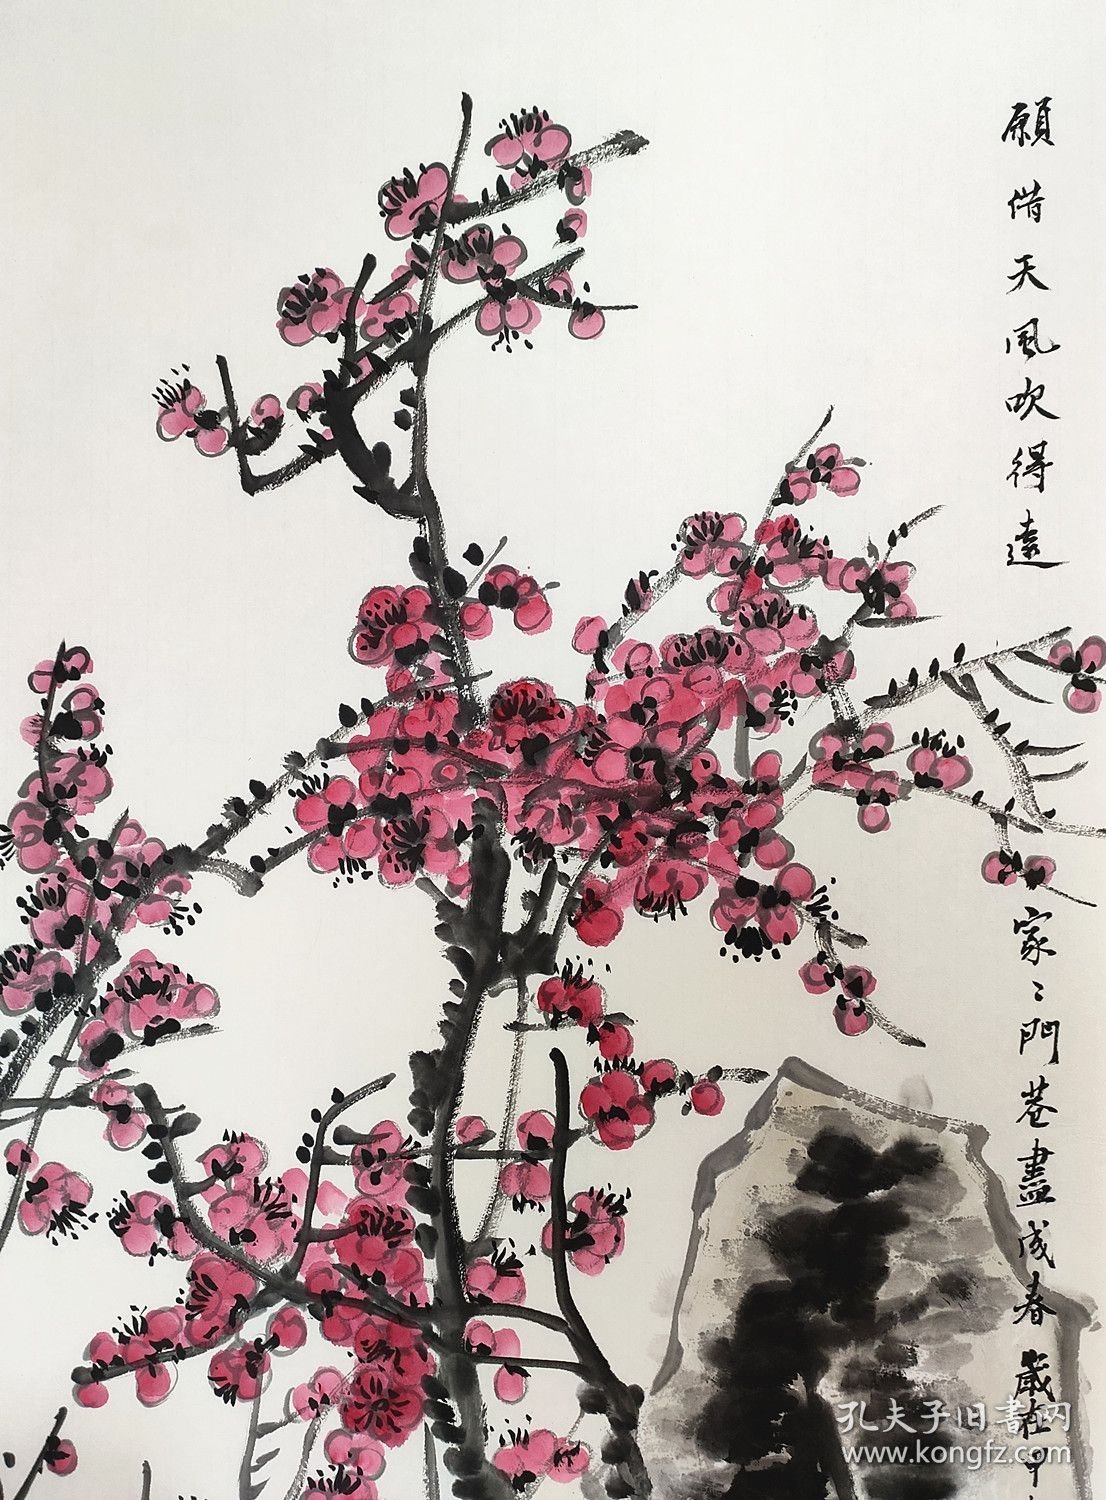 願借天風吹得遠 家〻門巷盡成春 歲在甲
孔夫子旧書网
www.kongfz.com